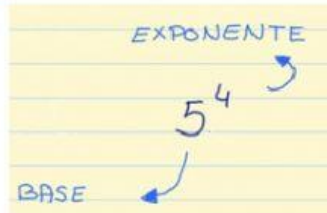 EXPONENTE
5⁴
BASE